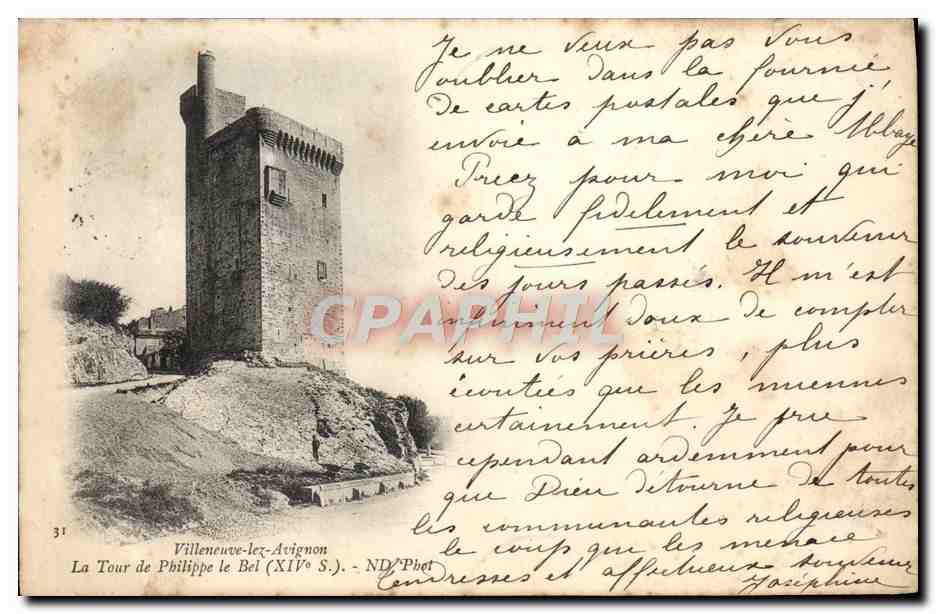 Je ne veux pas vous
oublier dans la fournie
De cartes postales que j'
envoie à ma chère Abbaye
Priez pour moi qui
garde fidelement et
religieusement le souvenir
des jours passés. Il m'est
infiniment doux de compter
sur vos prières, plus
écoutées que les miennes
certainement. Je prie
cependant ardemment pour
que Dieu détourne de toutes
les communautes religieuses
le coup que les menace
Tendresses et affectueux souvenir
Joséphine
CPAPHIL
31
Villeneuve-lez-Avignon
La Tour de Philippe le Bel (XIVe S.). - ND Phot